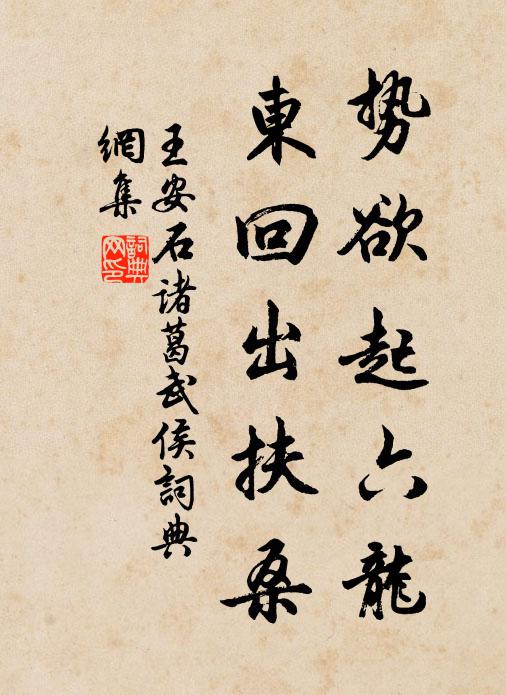 势欲起六龍
東回出扶桑
王安石諸葛武侯詞典
網集
詞典
网印